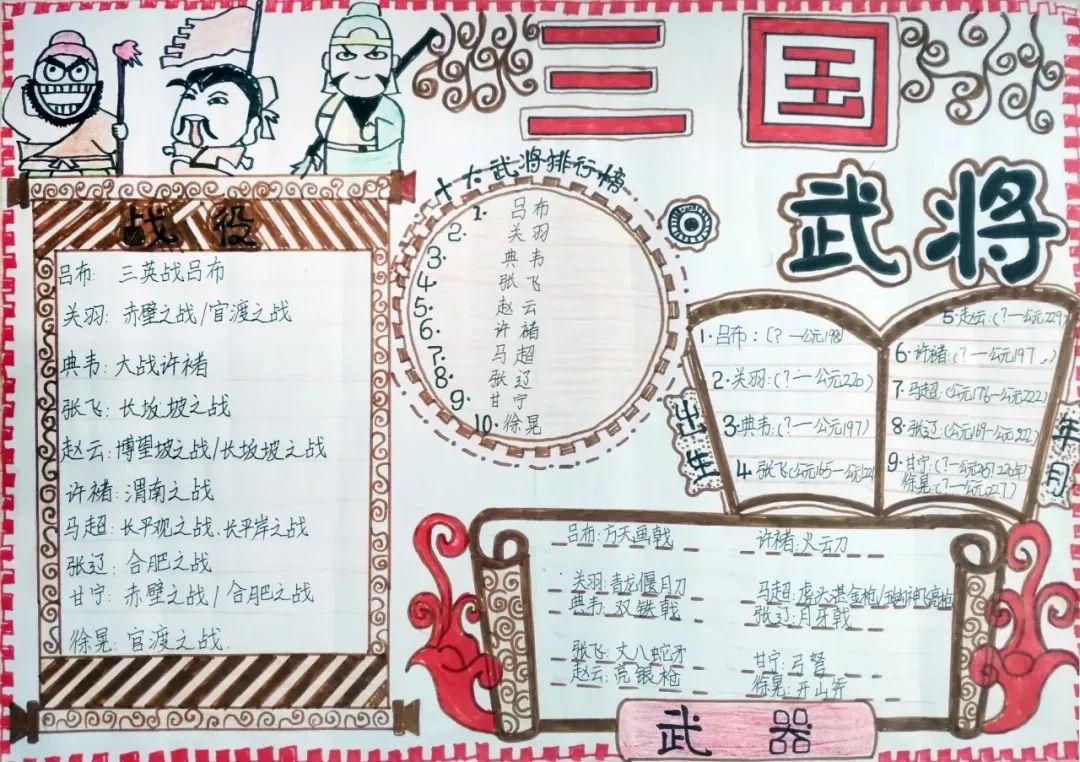 三国
武将
战役
吕布: 三英战吕布
关羽: 赤壁之战/官渡之战
典韦: 大战许褚
张飞: 长坂坡之战
赵云: 博望坡之战/长坂坡之战
许褚: 渭南之战
马超: 长平观之战、长平岸之战
张辽: 合肥之战
甘宁: 赤壁之战/合肥之战
徐晃: 官渡之战.
十大武将排行榜
1. 吕布
2. 关羽
3. 典韦
4. 张飞
5. 赵云
6. 许褚
7. 马超
8. 张辽
9. 甘宁
10. 徐晃
出生年月
1·吕布: (?一公元198)
2·关羽:(?一公元220)
3·典韦:(?一公元197)
4 张飞(公元165一公元221
5·赵云:(?一公元229)
6·许褚:(?一公元197、)
7·马超:(公元176一公元222)
8·张辽(公元169一公元222)
9·甘宁:(?一公元
徐晃:(?一公元227)
吕布:方天画戟
关羽:青龙偃月刀
典韦:双铁戟
张飞:丈八蛇矛
赵云:亮银枪
许褚:火云刀
马超:虎头湛金枪/
张辽:月牙戟
甘宁:弓弩
徐晃:开山斧
武器